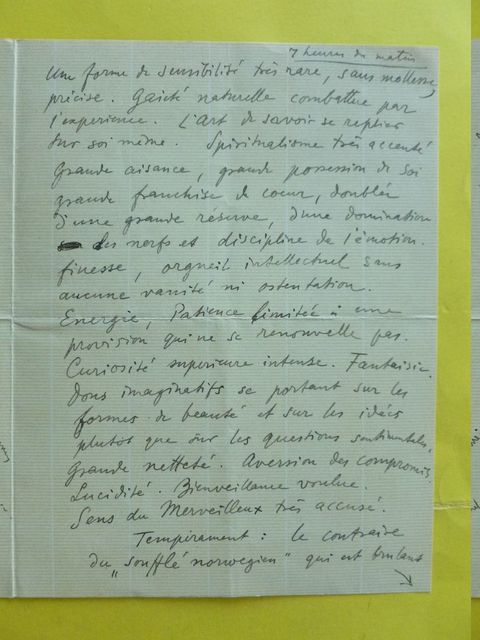 7 heures du matin
Une forme de sensibilité très rare, sans mollesse,
précise. Gaieté naturelle combattue par
l'expérience. L'Art de savoir se replier
sur soi même. Spiritualisme très accentué
Grande aisance, grande possession de soi
grande franchise de coeur, doublée
d'une grande réserve, d'une domination
des nerfs et discipline de l'émotion.
finesse, orgueil intellectuel sans
aucune vanité ni ostentation.
Energie, Patience limitée à une
provision qui ne se renouvelle pas.
Curiosité superieure intense. Fantaisie.
Dons imaginatifs se portant sur les
formes de beauté et sur les idées
plutôt que sur les questions sentimentales.
Grande netteté. Aversion des compromis.
Lucidité. Bienveillance voulue.
Sens du Merveilleux très accusé.
Tempérament : le contraire
du „soufflé norwegien" qui est brulant